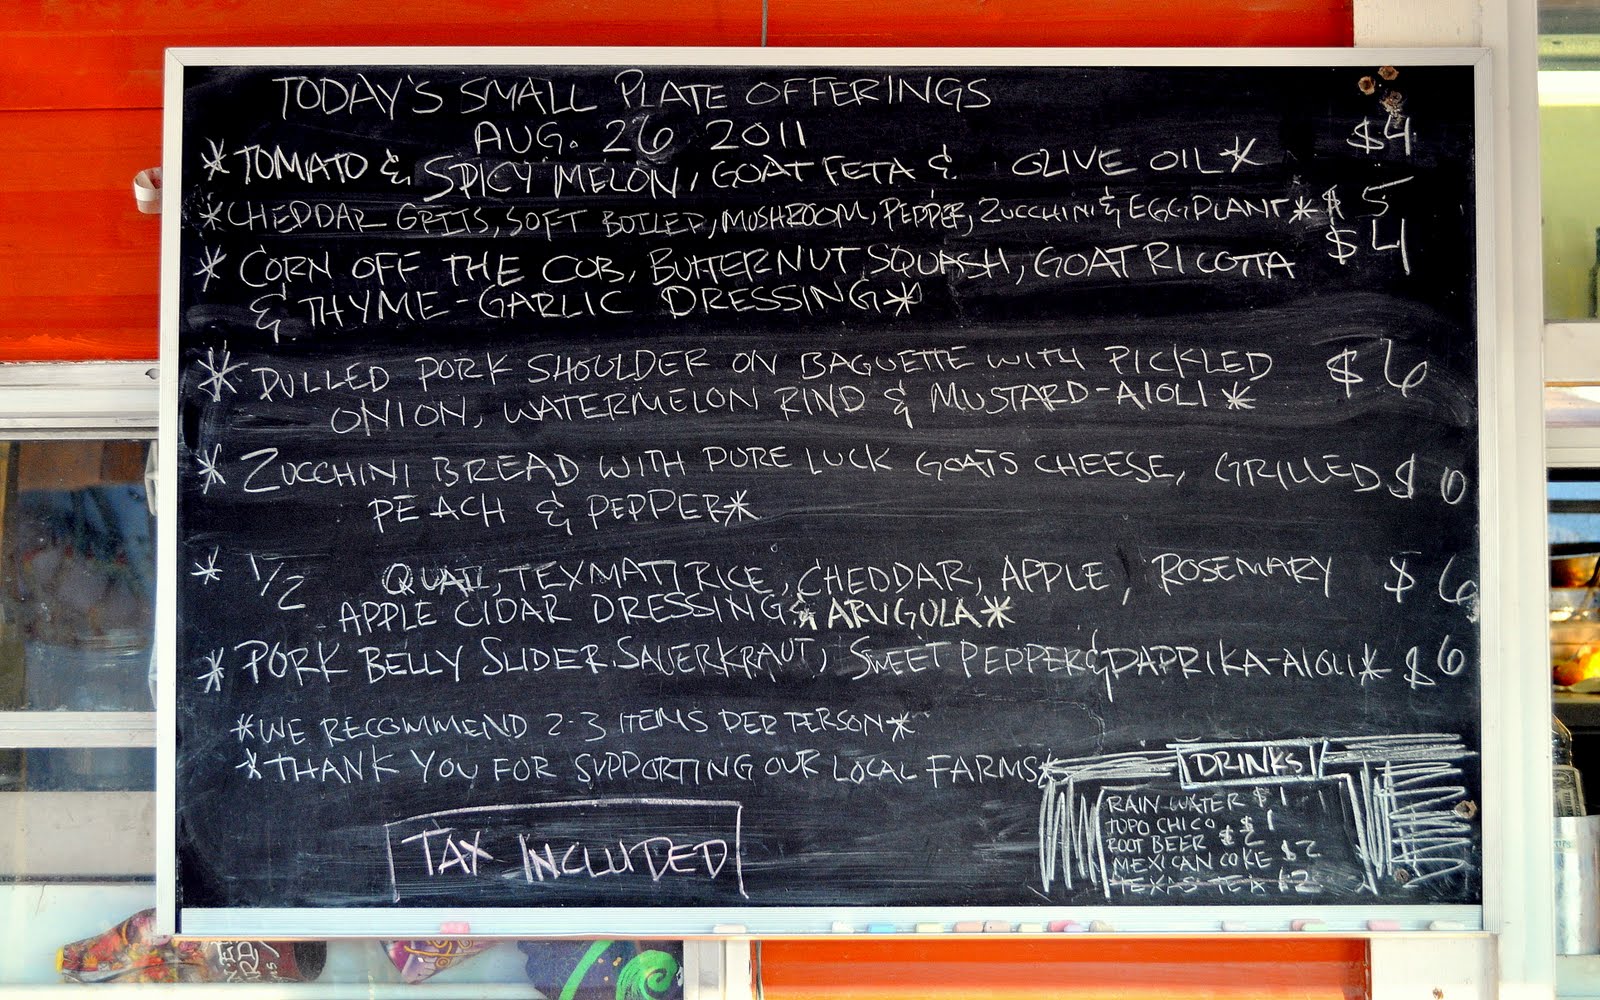 TODAY'S SMALL PLATE OFFERINGS
AUG. 26 2011
*TOMATO & SPICY MELON, GOAT FETA & OLIVE OIL* $4
*CHEDDAR GRITS, SOFT BOILED, MUSHROOM, PEPPER, ZUCCHINI & EGGPLANT* $5
*CORN OFF THE COB, BUTTERNUT SQUASH, GOAT RICOTTA $4
& THYME-GARLIC DRESSING*
*PULLED PORK SHOULDER ON BAGUETTE WITH PICKLED $6
ONION, WATERMELON RIND & MUSTARD-AIOLI*
*ZUCCHINI BREAD WITH PURE LUCK GOATS CHEESE, GRILLED $
PEACH & PEPPER*
* 1/2 QUAIL, TEXMATI RICE, CHEDDAR, APPLE, ROSEMARY $6
APPLE CIDAR DRESSING & ARUGULA*
*PORK BELLY SLIDER. SAUERKRAUT, SWEET PEPPER & PAPRIKA-AIOLI* $6
*WE RECOMMEND 2-3 ITEMS PER PERSON*
*THANK YOU FOR SUPPORTING OUR LOCAL FARMS*
TAX INCLUDED
DRINKS
RAIN WATER $1
TOPO CHICO $1
ROOT BEER $2
MEXICAN COKE $2
TEXAS TEA 12